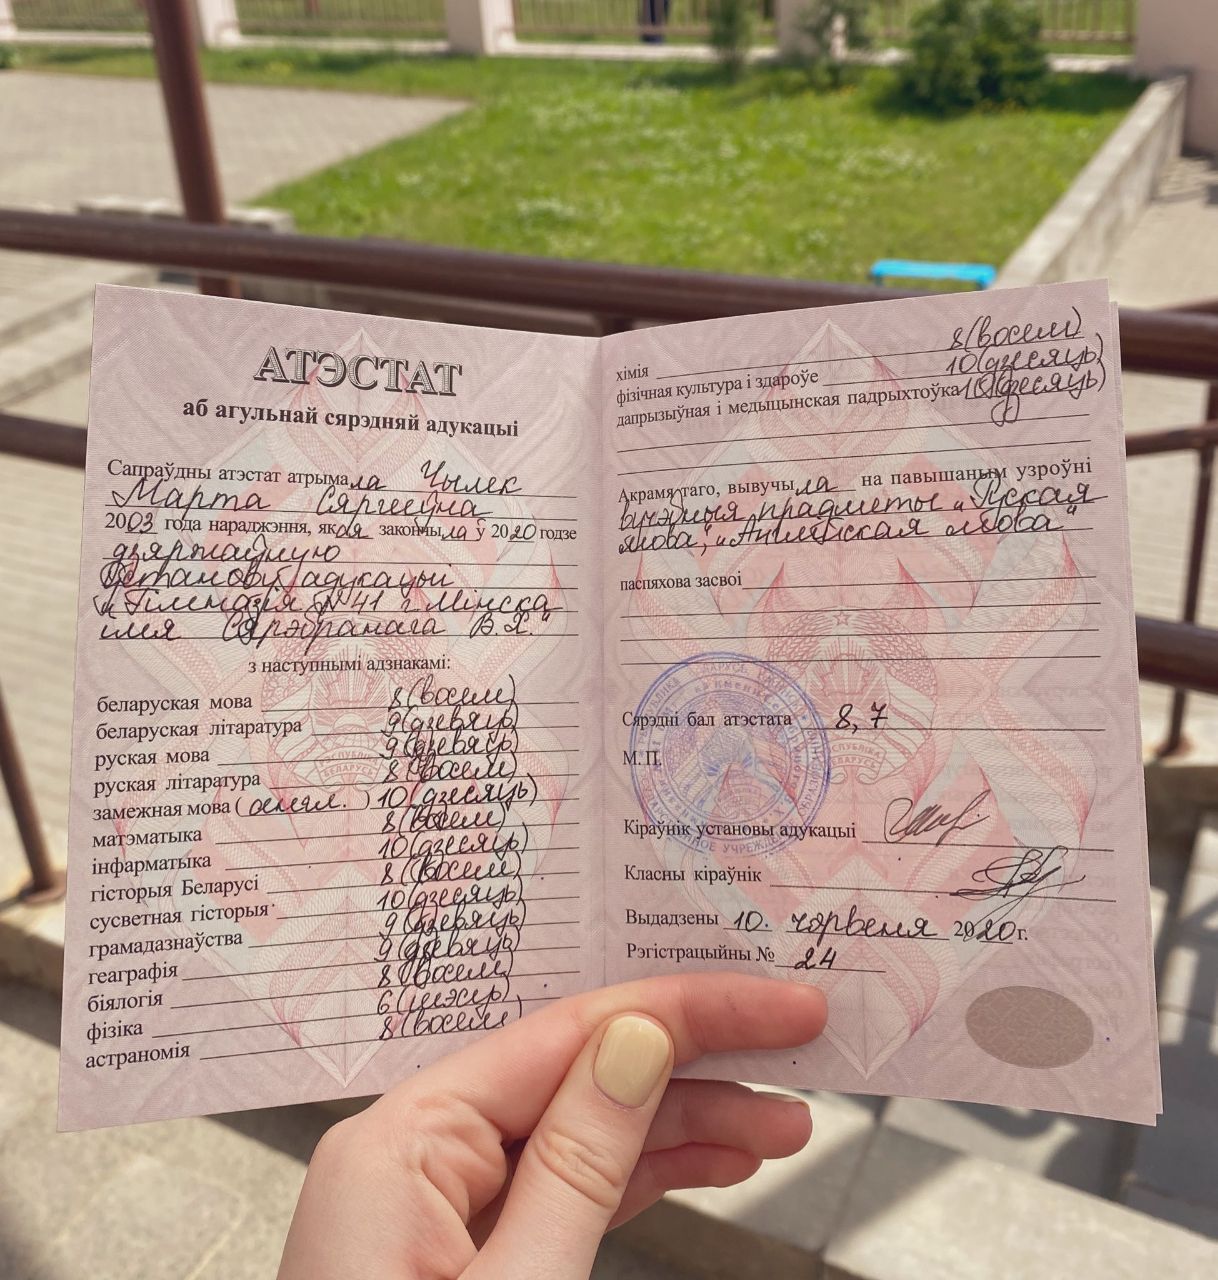 АТЭСТАТ
аб агульнай сярэдняй адукацыі
Сапраўдны атэстат атрымала Чылек
Марта Сяргееўна
2003 года нараджэння, якая закончыла ў 2020 годзе
дзяржаўную
установу адукацыі
"Гімназія №41 г. Мінска
імя Сярэбранага В.Х."
з наступнымі адзнакамі:
беларуская мова 8 (восем)
беларуская літаратура 9 (дзевяць)
руская мова 9 (дзевяць)
руская літаратура 8 (восем)
замежная мова (англ.) 10 (дзесяць)
матэматыка 8 (восем)
інфарматыка 10 (дзесяць)
гісторыя Беларусі 8 (восем)
сусветная гісторыя 10 (дзесяць)
грамадазнаўства 9 (дзевяць)
геаграфія 9 (дзевяць)
біялогія 8 (восем)
фізіка 6 (шэсць)
астраномія 8 (восем)
хімія 8 (восем)
фізічная культура і здароўе 10 (дзесяць)
дапрызыўная і медыцынская падрыхтоўка 10 (дзесяць)
Акрамя таго, вывучыла на павышаным узроўні
вучэбныя прадметы "Руская
мова", "Англійская мова"
паспяхова засвоі
Сярэдні бал атэстата 8,7
М. П.
Кіраўнік установы адукацыі
Класны кіраўнік
Выдадзены 10. чэрвеня 2020 г.
Рэгістрацыйны № 24